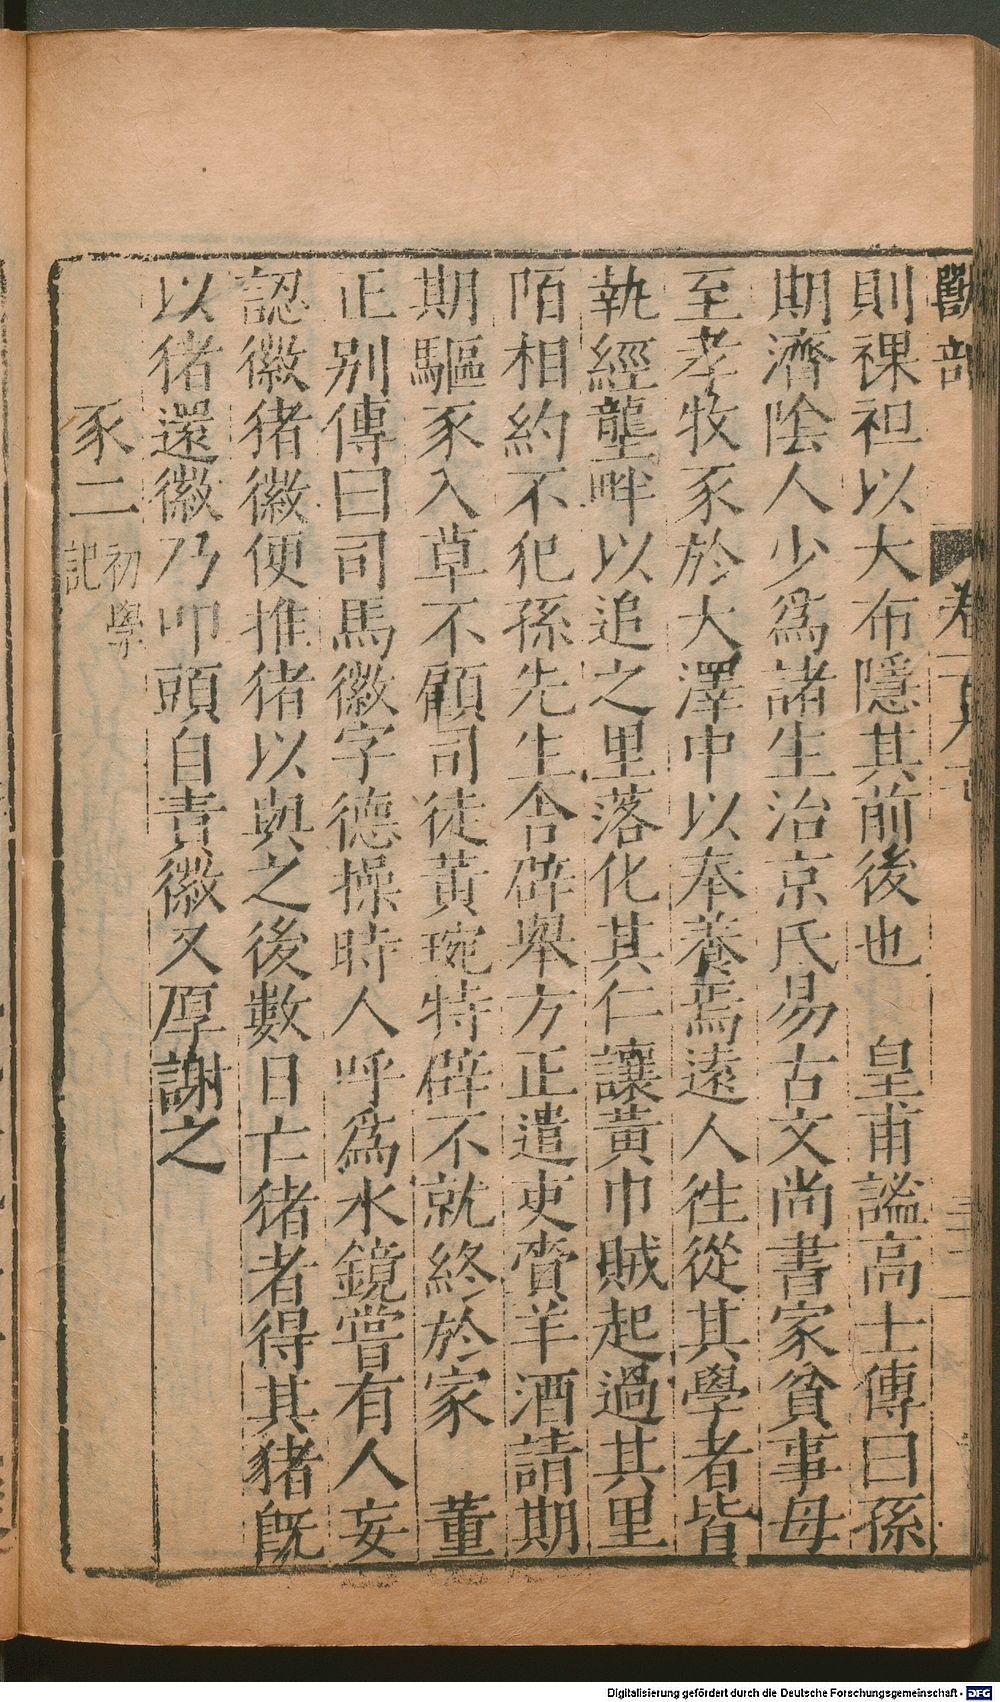 獸部
卷一百九十
則裸袒以大布隱其前後也　皇甫謐高士傳曰孫
期濟陰人少爲諸生治京氏易古文尚書家貧事母
至孝牧豕於大澤中以奉養焉遠人徃從其學者皆
執經壟畔以追之里落化其仁讓黃巾賊起過其里
陌相約不犯孫先生舍辟舉方正遣吏齎羊酒請期
期驅豕入草不顧司徒黃琬特辟不就終於家　董
正別傳曰司馬徽字德操時人呼爲水鏡嘗有人妄
認徽猪徽便推猪以與之後數日亡猪者得其猪旣
以猪還徽乃叩頭自責徽又厚謝之
豕二 初學記
Digitalisierung gefördert durch die Deutsche Forschungsgemeinschaft - DFG